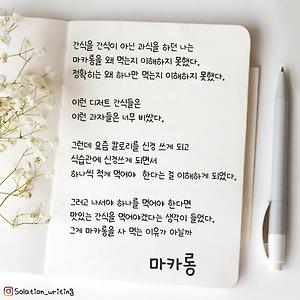 간식을 간식이 아닌 과식을 하던 나는
마카롱을 왜 먹는지 이해하지 못했다.
정확히는 왜 하나만 먹는지 이해하지 못했다.
이런 디저트 간식들은
이런 과자들은 너무 비쌌다.
그런데 요즘 칼로리를 신경 쓰게 되고
식습관에 신경쓰게 되면서
하나씩 적게 먹어야 한다는 걸 이해하게 되었다.
그러고 나서야 하나를 먹어야 한다면
맛있는 간식을 먹어야겠다는 생각이 들었다.
그게 마카롱을 사 먹는 이유가 아닐까
마카롱
@Solation_writing